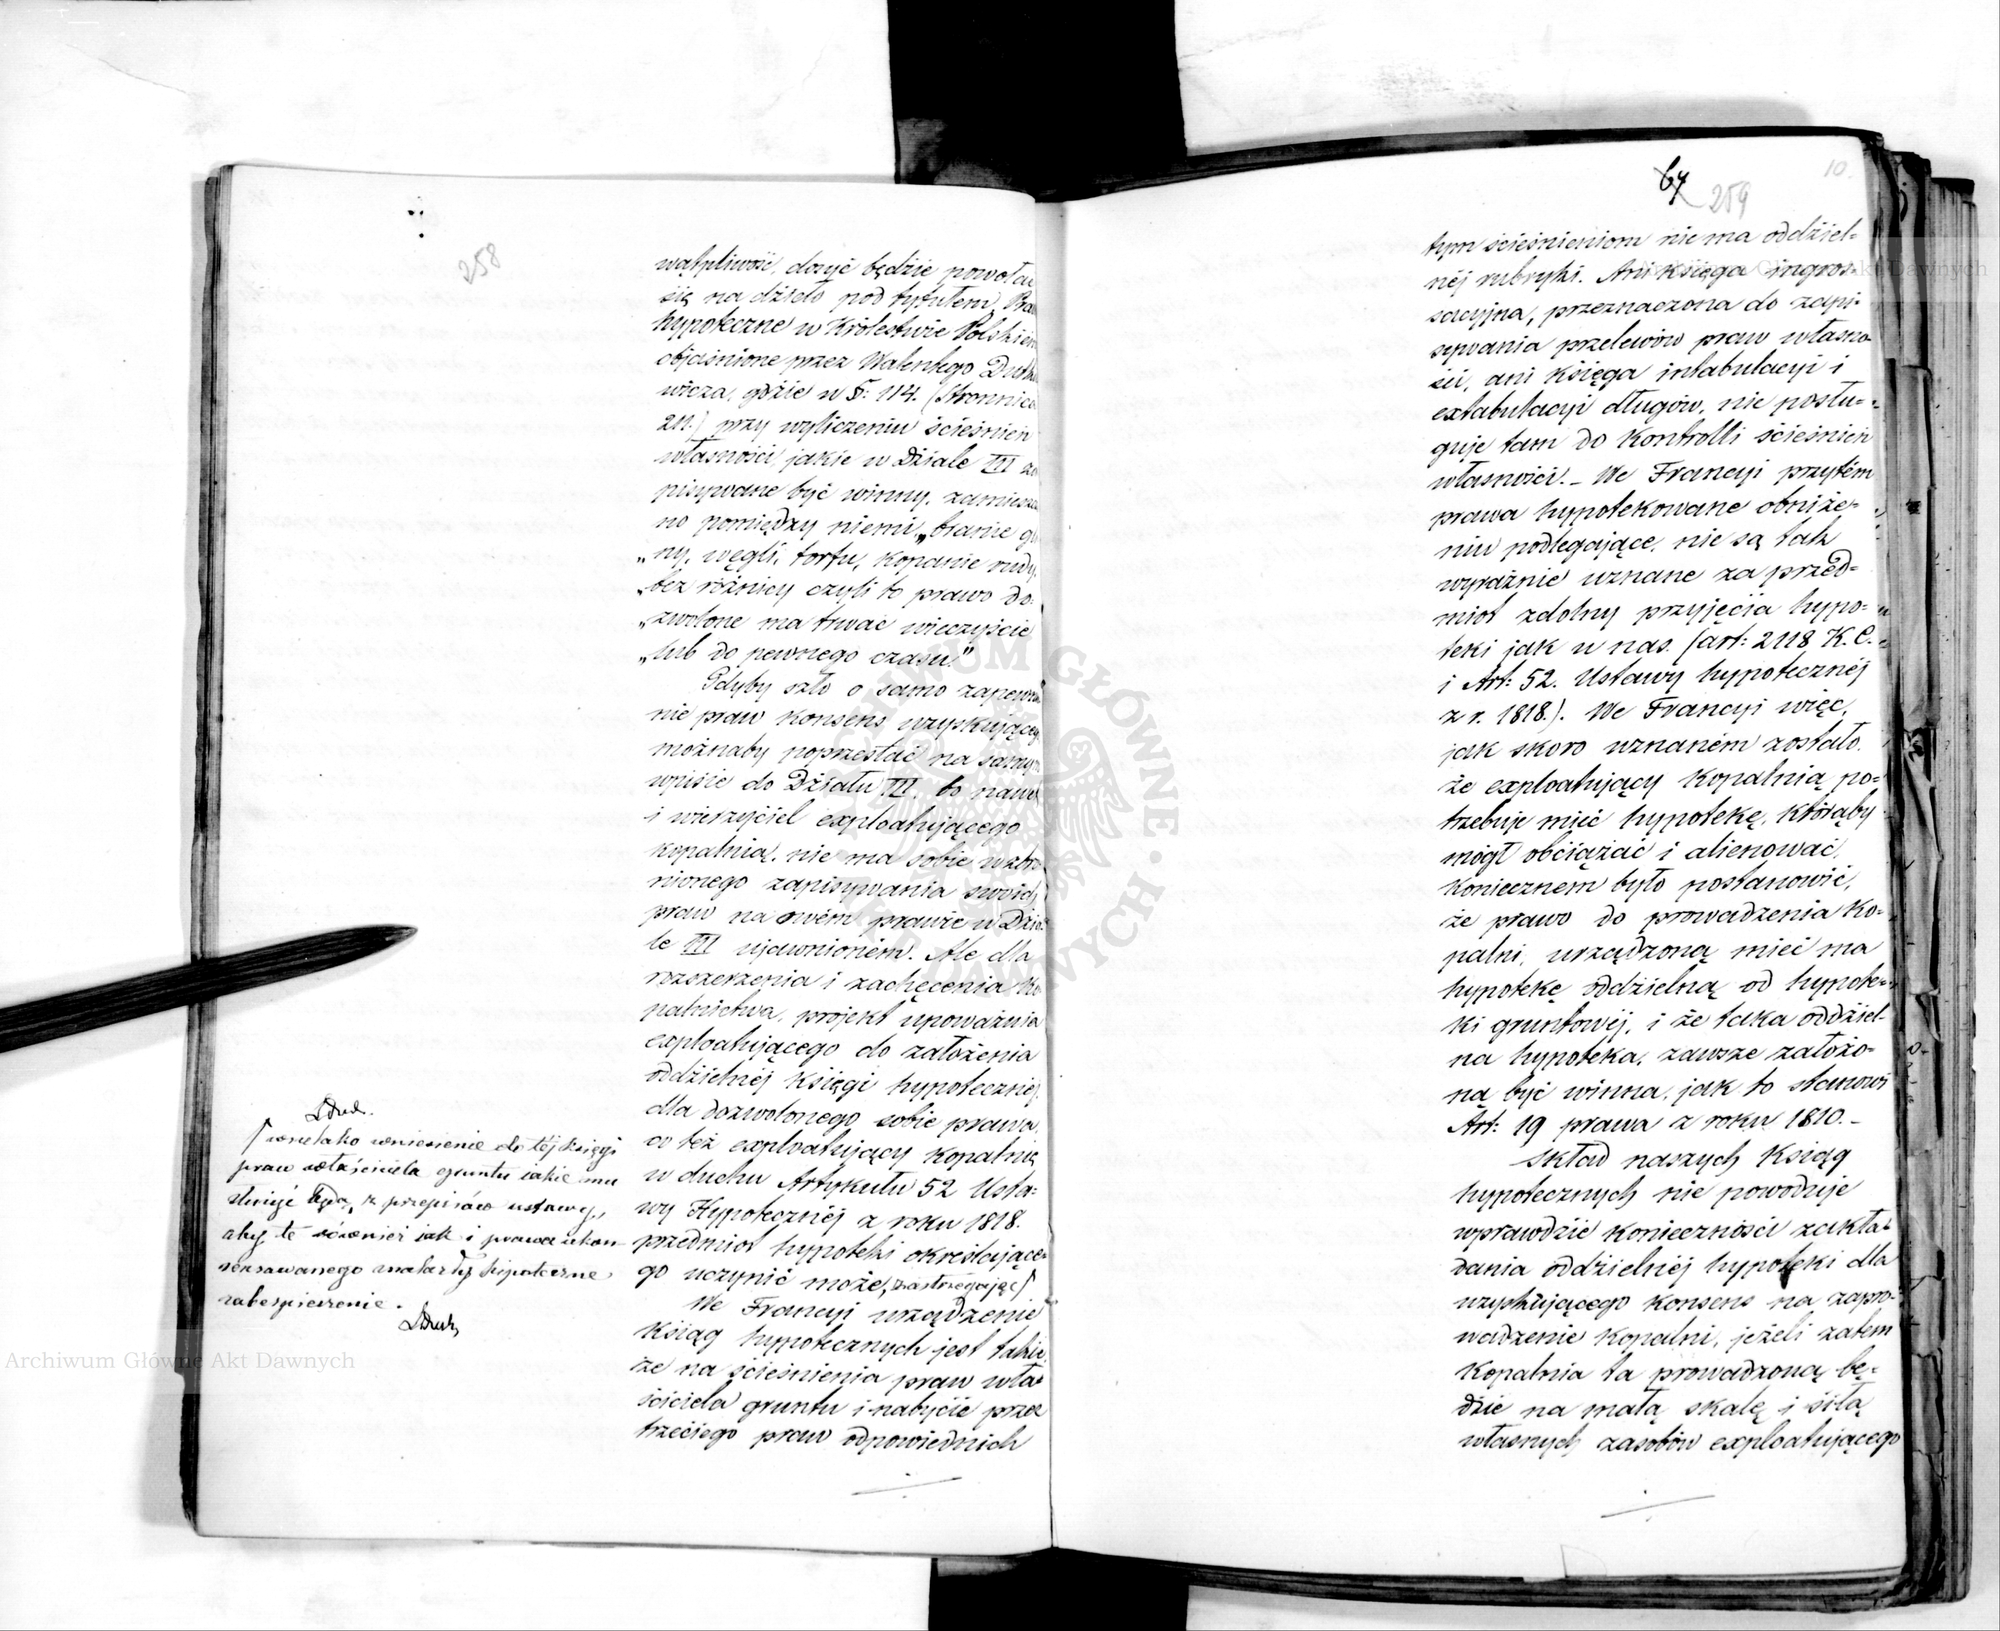 258
wątpliwość, dosyć będzie powołać
się na dzieło pod tytułem Pra
hypoteczne w Królestwie Polskiem
objaśnione przez Walentego Dutk
wicza, gdzie w §: 114. (Stronnica
211.) przy wyliczeniu ścieśnień
własności, jakie w Dziale III za
pisywane być winny, zamieszczo
no pomiędzy niemi, „branie gli
„ny, węgli, torfu, kopanie rudy,
„bez różnicy czyli to prawo do=
„zwolone ma trwać wieczyście
„lub do pewnego czasu."
Gdyby szło o samo zapewnie
nie praw konsens uzyskującego
możnaby poprzestać na samym
wpisie do Działu III. bo nawet
i wierzyciel exploatującego
kopalnią, nie ma sobie wzbro
nionego zapisywania swoich
praw na owém prawie w Dzia
le III ujawnioném. Ale dla
rozszerzenia i zachęcenia ko
palnictwa, projekt upoważnia
exploatującego do założenia
oddzielnéj księgi hypotecznéj,
dla dozwolonego sobie prawa,
co też exploatujący kopalnię
w duchu Artykułu 52 Usta=
wy Hypotecznéj z roku 1818.
przedmiot hypoteki określające
go uczynić może, zastrzegając
We Francyi urządzenie
ksiąg hypotecznych jest takie,
że na ścieśnienia praw wła
ściciela gruntu i nabycie przez
trzeciego praw odpowiednich
wszelako wniesienie do téj księgi
praw właściciela gruntu jakie mu
służyć będą, z przepisów ustawy,
aby te również jak i prawa ukon
sensowanego znalazły hipoteczne
zabezpieczenie.
67
259
10.
tym ścieśnieniom nie ma oddziel=
néj rubryki. Ani księga ingros=
sacyjna, przeznaczona do zapi=
sywania przelewów praw własno
ści, ani księga intabulacyi i
extabulacyi długów, nie posłu=
guje tam do kontrolli ścieśnień
własności._ We Francyi przytém
prawa hypotekowane obniże=
niu podlegające, nie są tak
wyraźnie uznane za przed=
miot zdolny przyjęcia hypo=
teki jak u nas. (art: 2118 K. C.
i Art: 52. Ustawy hypotecznéj
z r. 1818.). We Francyi więc,
jak skoro uznaném zostało,
że exploatujący kopalnią po=
trzebuje mieć hypotekę, którąby
mógł obciążać i alienować,
koniecznem było postanowić,
że prawo do prowadzenia ko=
palni, urządzoną mieć ma
hypotekę oddzielną od hypote=
ki gruntowéj, i że taka oddziel=
na hypoteka, zawsze założo=
ną być winna, jak to stanowi
Art: 19 prawa z roku 1810._
Skład naszych Ksiąg
hypotecznych nie powoduje
wprawdzie konieczności zakła=
dania oddzielnéj hypoteki dla
uzyskującego konsens na zapro=
wadzenie kopalni, jeżeli zatem
kopalnia ta prowadzoną bę=
dzie na małą skalę i siłą
własnych zasobów exploatującego
Archiwum Główne Akt Dawnych
Archiwum Główne Akt Dawnych
ARCHIWUM GŁÓWNE AKT DAWNYCH